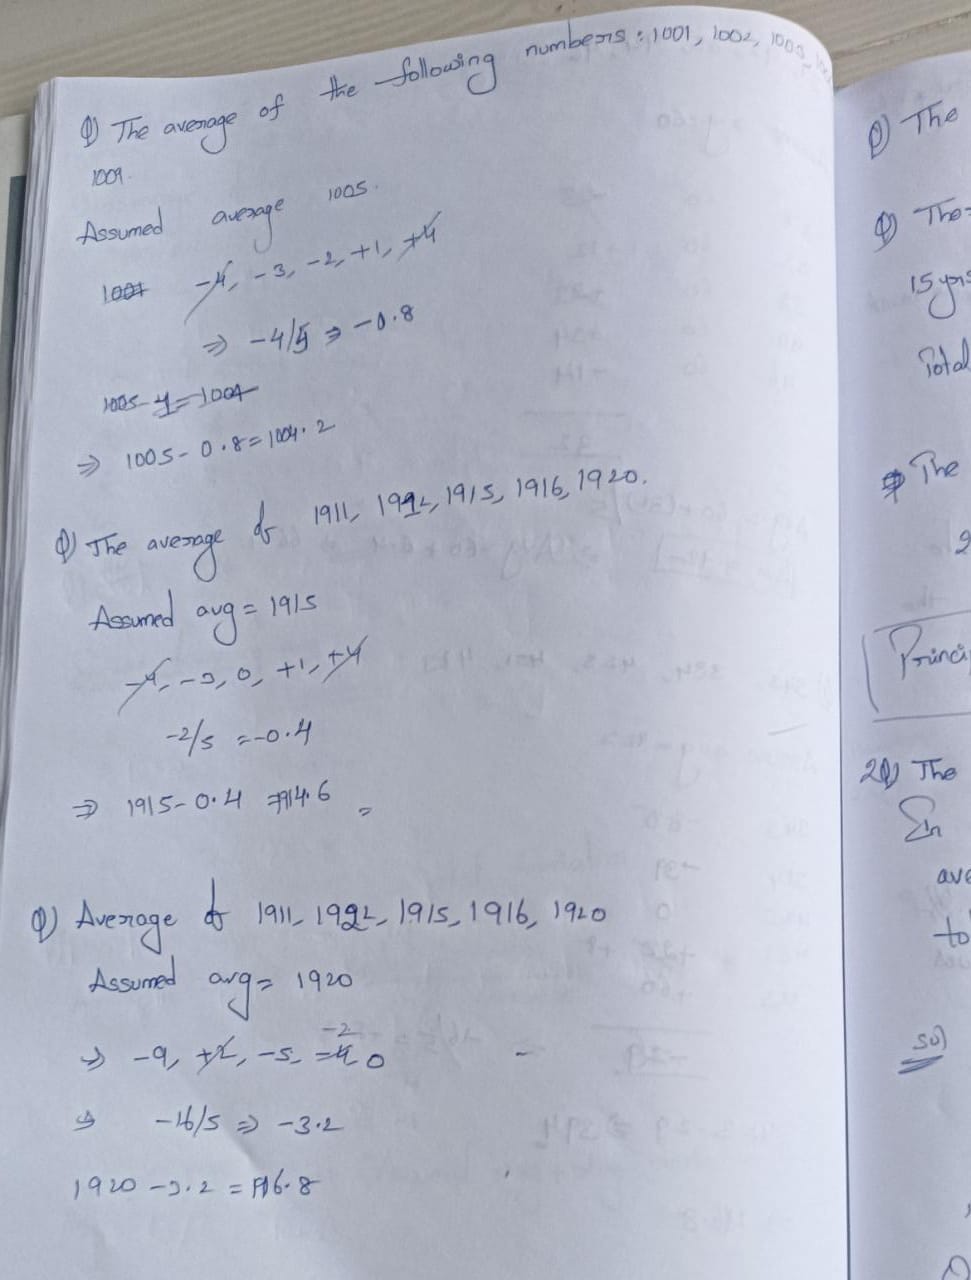 Q) The average of the following numbers : 1001, 1002, 1003,
1009.
Assumed average 1005.
1001 -4, -3, -2, +1, +4
⇒ -4/5 ⇒ -0.8
1005-4=1004
⇒ 1005-0.8=1004.2
Q) The average of 1911, 1912, 1915, 1916, 1920.
Assumed avg = 1915
-4, -3, 0, +1, +4
-2/5 =-0.4
⇒ 1915-0.4 =1914.6
Q) Average of 1911, 1912, 1915, 1916, 1920
Assumed avg = 1920
-2
⇒ -9, +2, -5, 0
⇒ -16/5 ⇒ -3.2
1920 -3.2 = 1916.8
Q) The
Q) The
15 yrs
Total
The
2
20) The
In
to
sol